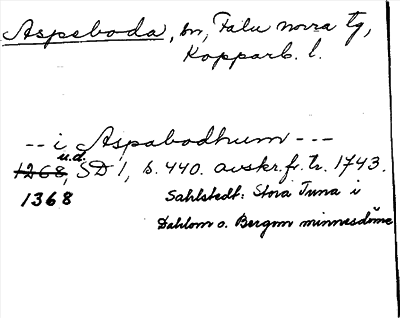 Aspeboda, sn, Falu norra tg,
Kopparb. l.
-- i Aspabodhum ---
1268, u.d. SD 1, s. 440. avskr. fr. tr. 1743.
1368 Sahlstedt: Stora Tuna i
Dahlom o. Bergom minnesdöme